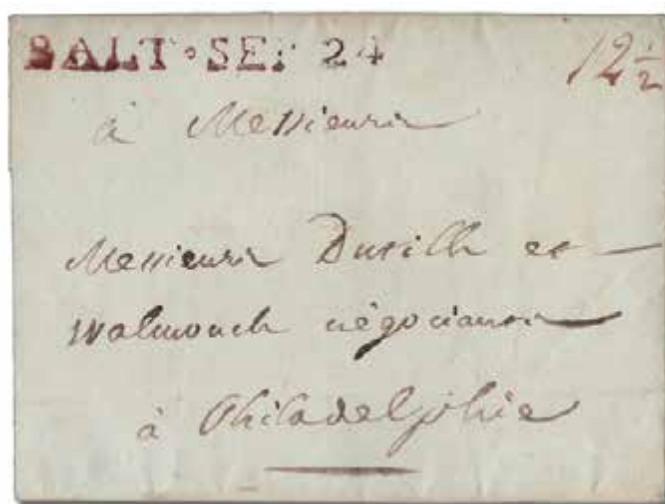 BALT · SEP 24
12 1/2
à Messieurs
Messieurs Dutilh et
Walmouch négocians
à Philadelphie